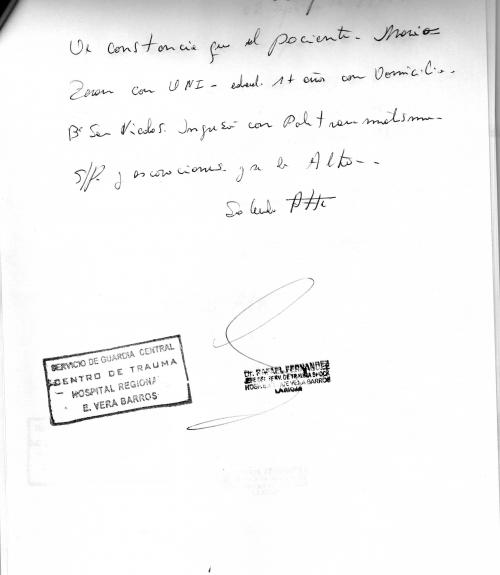 constancia que el paciente. Mario
con DNI - edad. años con Domicilio.
Bº San Nicolas. Ingresó con Politraumatismo
S/P. y escoriaciones y se da Alta -
Saludo Atte
SERVICIO DE GUARDIA CENTRAL
CENTRO DE TRAUMA
HOSPITAL REGIONAL
E. VERA BARROS
Dr. RAFAEL FERNANDEZ
JEFE DEL SERV. DE TRAUMA SHOCK
HOSPITAL VERA BARROS
LA RIOJA